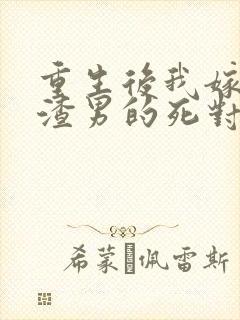 重生後我嫁
渣男的死對
希蒙·佩雷斯